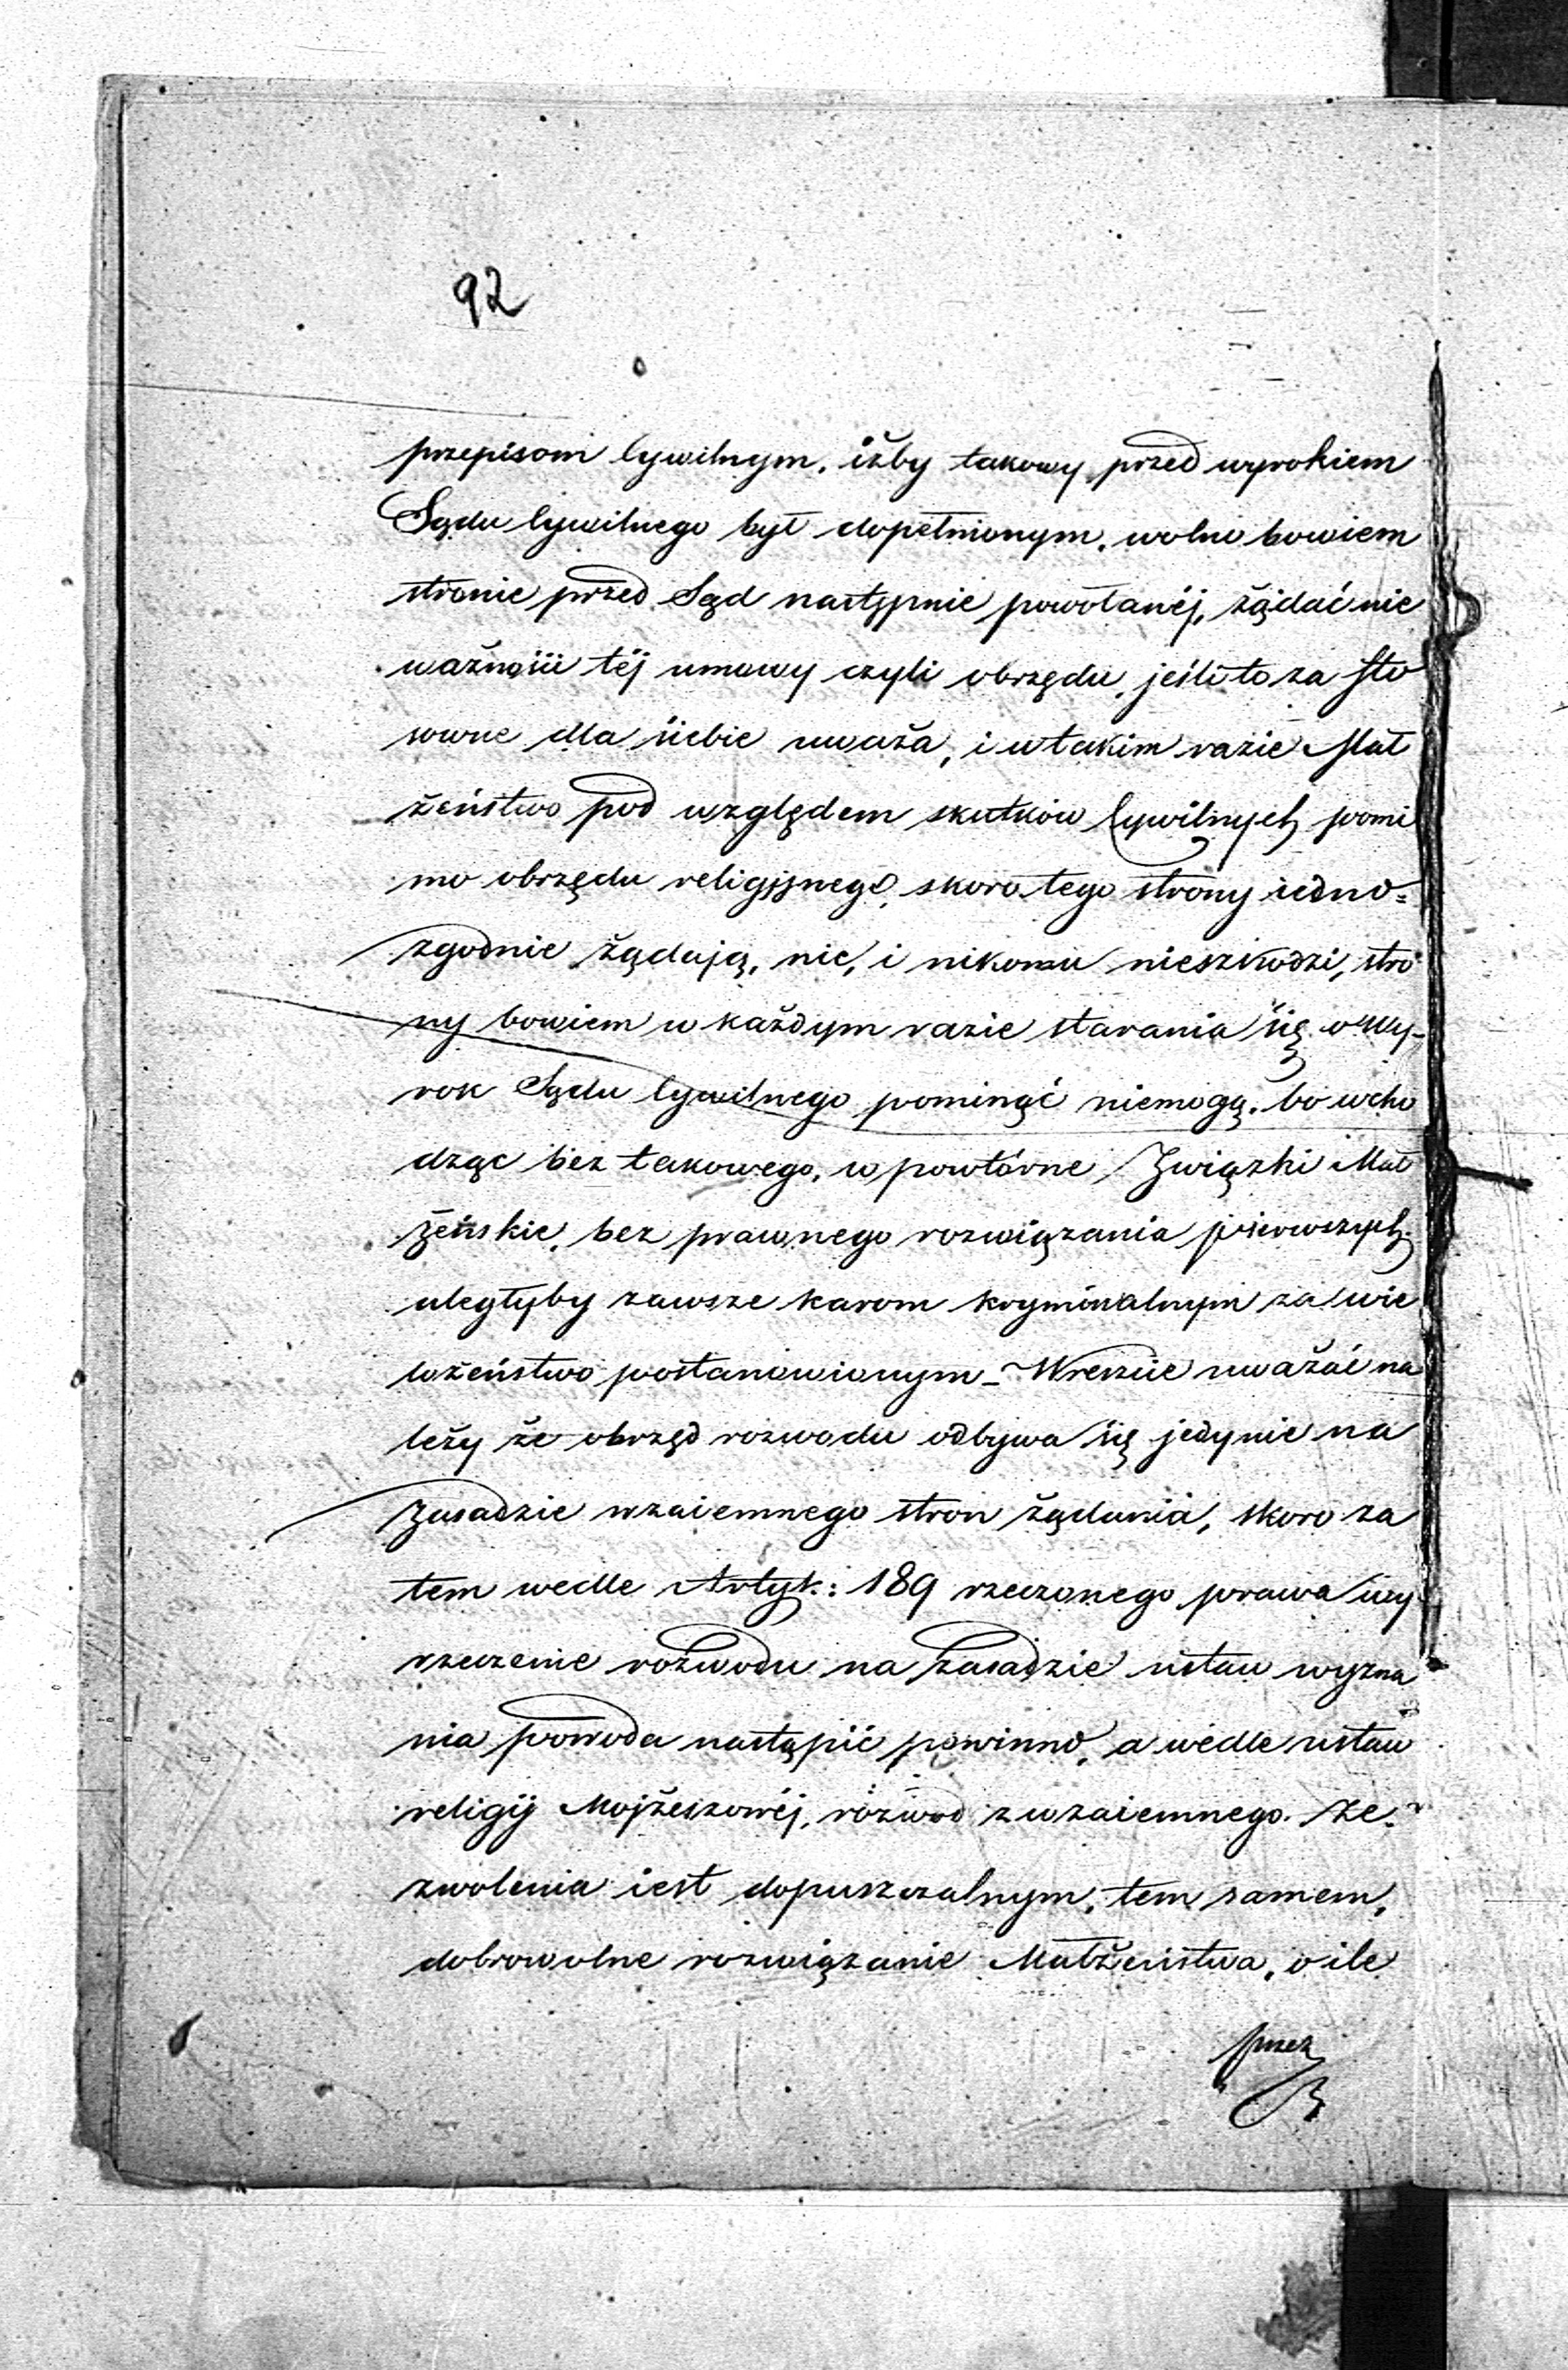 92
przepisom Cywilnym, iżby takowy przed wyrokiem
Sądu Cywilnego był dopełnionym, wolno bowiem
stronie przed Sąd następnie powołanéj, żądać nie
ważności téj umowy czyli obrzędu, jeśli to za sto
sowne dla siebie uważa, i w takim razie Mał
żeństwo pod względem skutków Cywilnych pomi
mo obrzędu religijnego, skoro tego strony iedno=
zgodnie żądają, nic, i nikomu nieszkodzi, stro
ny bowiem w każdym razie starania się o Wy-
rok Sądu Cywilnego pominąć niemogą, bo wcho
dząc bez takowego, w powtórne Związki Mał
żeńskie, bez prawnego rozwiązania pierwszych
uległyby zawsze karom kryminalnym za wie
lożeństwo postanowionym - Wreszcie uważać na
leży że obrząd rozwodu odbywa się jedynie na
Zasadzie wzaiemnego stron żądania, skoro za
tem wedle Artyk: 189 rzeczonego prawa wy
rzeczenie rozwodu na zasadzie ustaw wyzna
nia powoda nastąpić powinno, a wedle ustaw
religij Mojżeszowéj, rozwód z wzaiemnego ze=
zwolenia iest dopuszczalnym, tem samem,
dobrowolne rozwiązanie Małżeństwa, o ile
przez